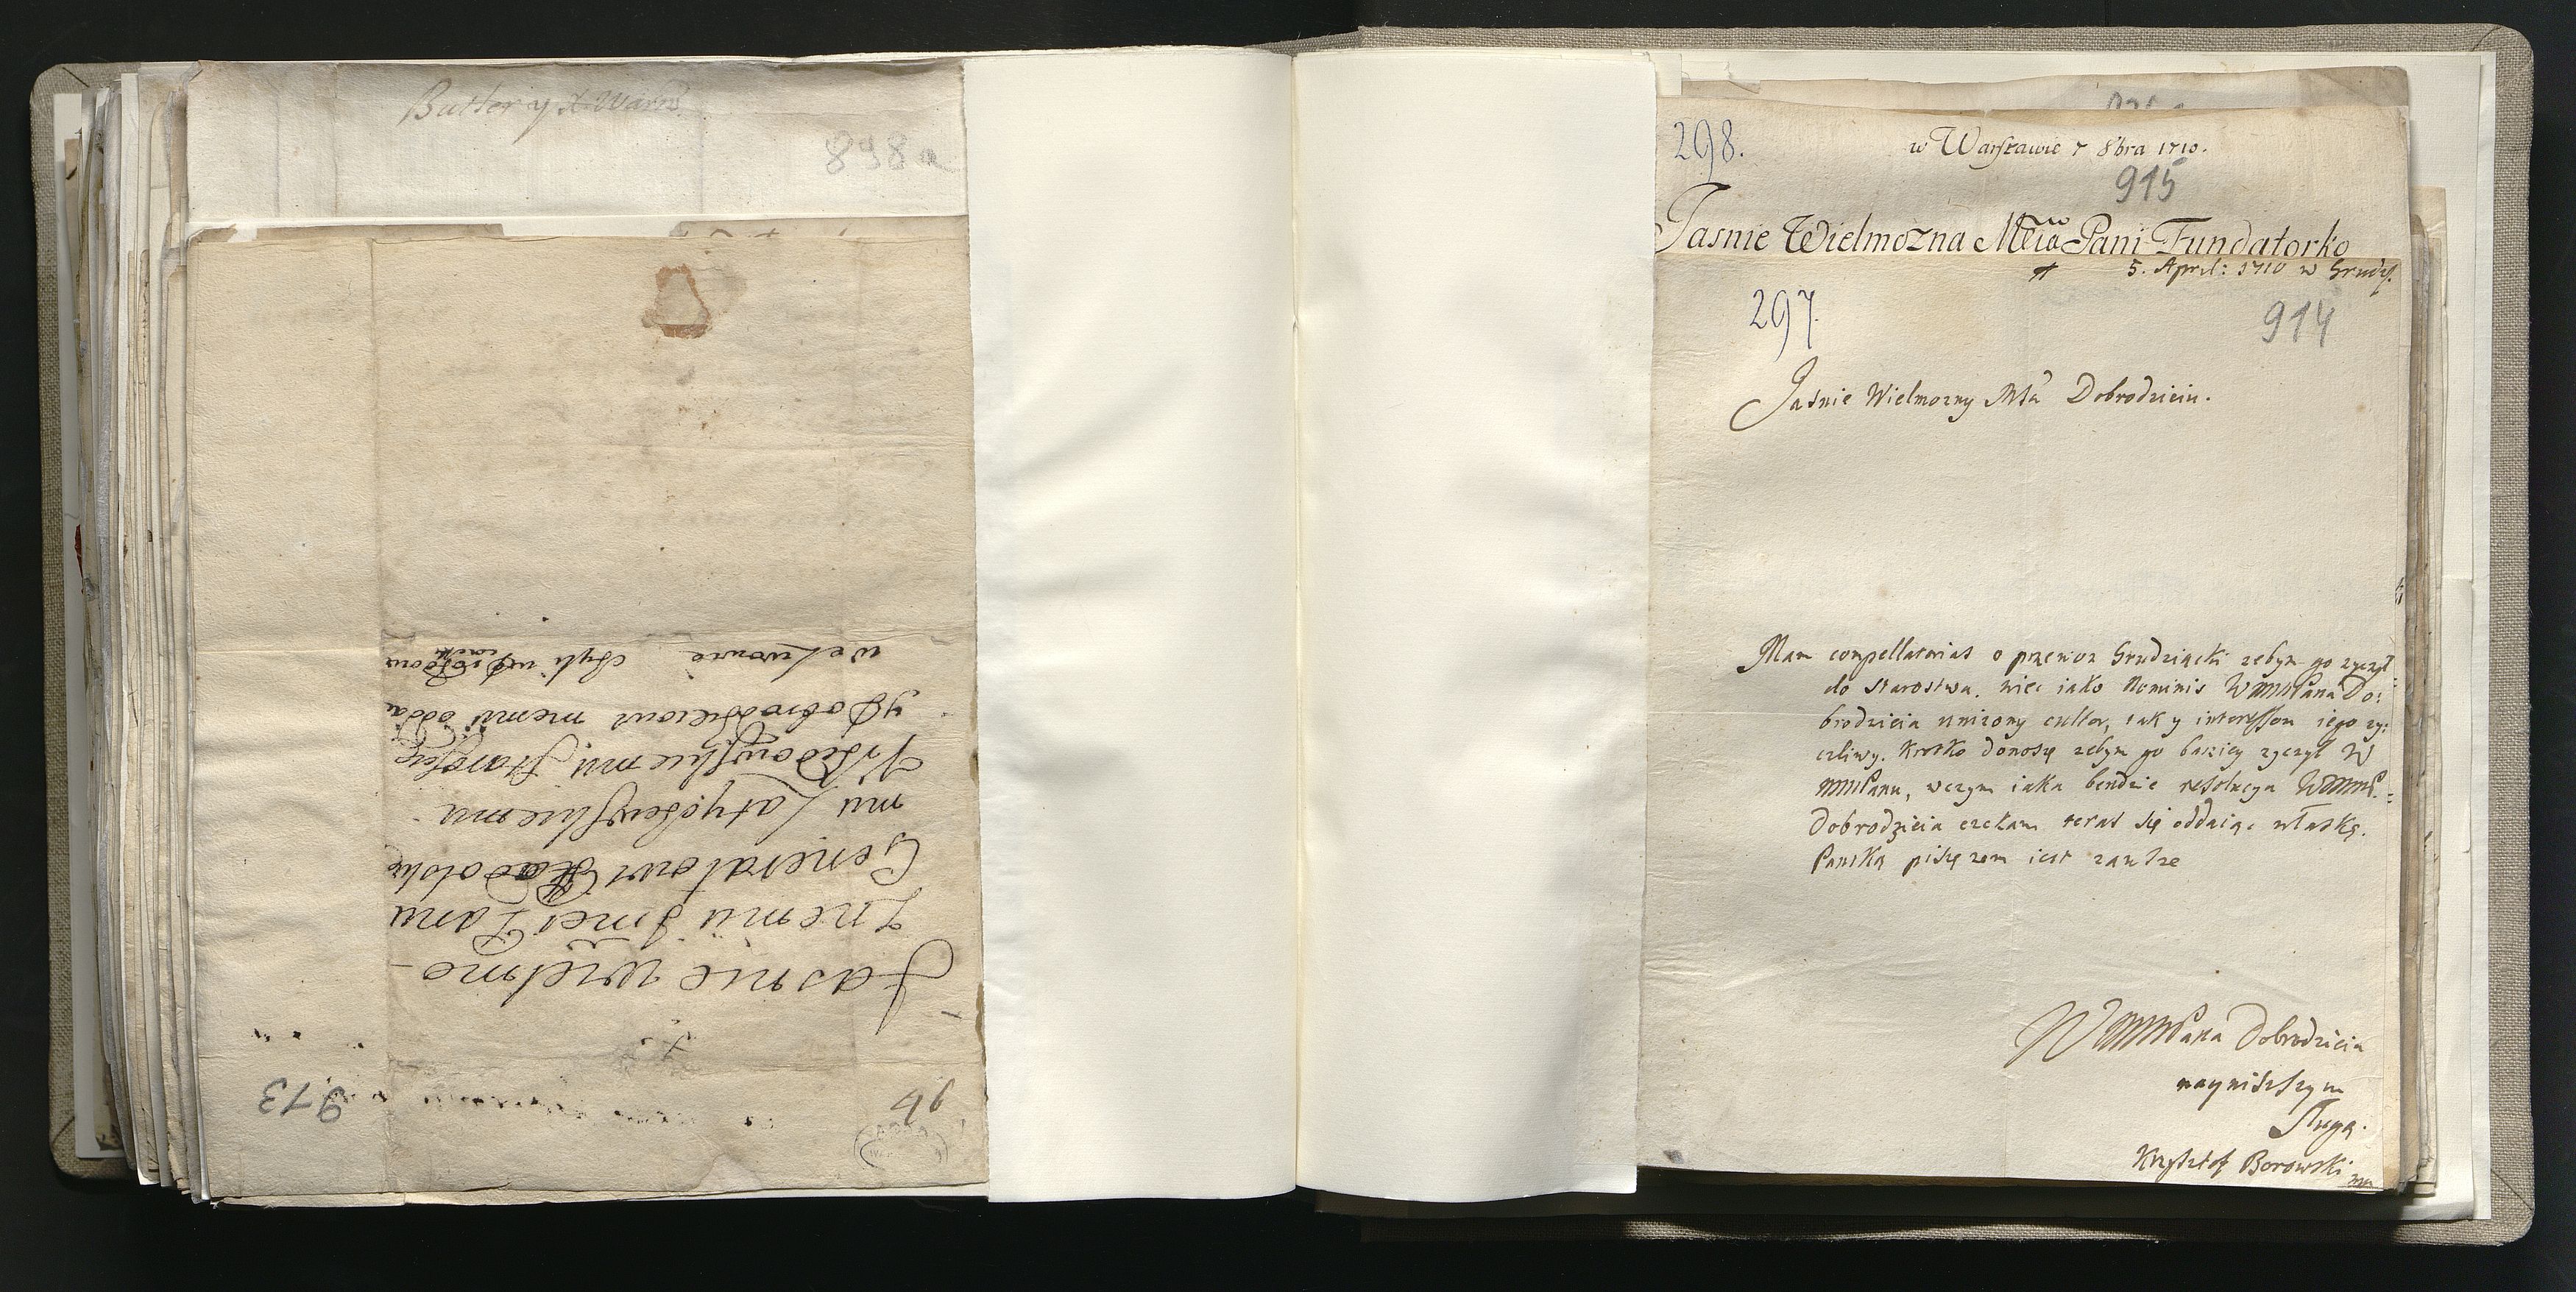 Butler y x Warw.
898a
Jasnie wielmo-
znemu Jmci Panu
Generałowi Podolskie
mu Latyczewskiemu
Staroscie
y Dobrodzieiowi memu odda
we Lwowie
913
94
298.
w Warszawie 7 8bra 1710.
915
Jasnie Wielmozna Mcia Pani Fundatorko
5. April: 1710 w Grudz.
297.
914
Jasnie Wielmozny Msci Dobrodzieiu.
Mam compellatorias o przewoz Grudziącki zebym go zyczył
do Starostwa. wiec iako Nominis WMMPana Do:
brodzieia unizony cultor, tak y interessom iego zy:
czliwy. Krotko donoszę zebym go barziey zyczył W
MMPanu, wczym iaka bendzie resolucya WMMP.
Dobrodzieia czekam teras się oddaiąc właskę.
Panską piszę zem iest zawsze
WMMPana Dobrodzieia
nayniszszym
Sługą.
Krzysztof Borowski mp